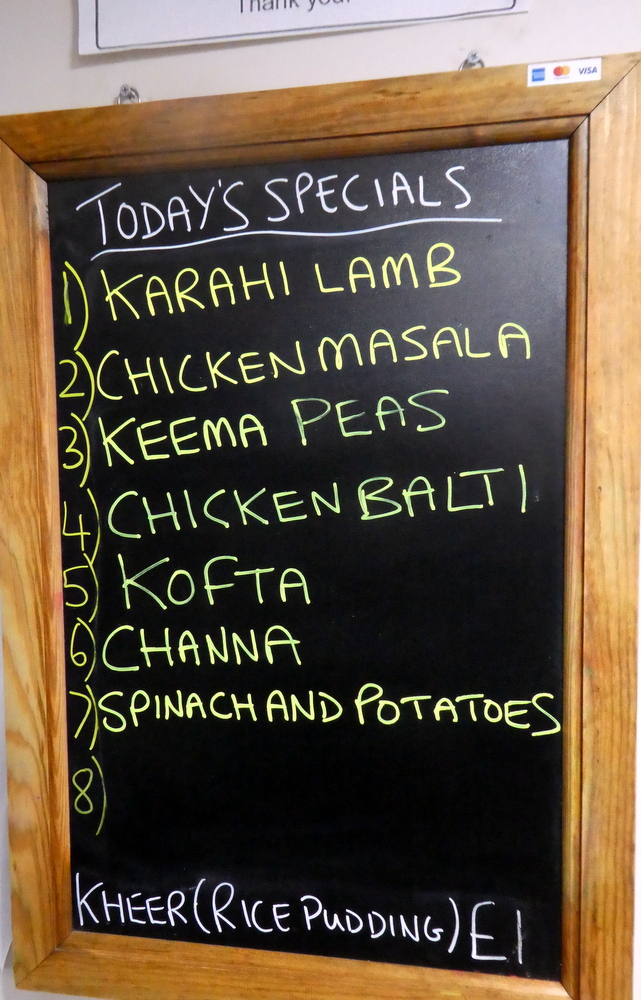 Thank you.
VISA
TODAY'S SPECIALS
1) KARAHI LAMB
2) CHICKEN MASALA
3) KEEMA PEAS
4) CHICKEN BALTI
5) KOFTA
6) CHANNA
7) SPINACH AND POTATOES
8)
KHEER (RICE PUDDING) £1